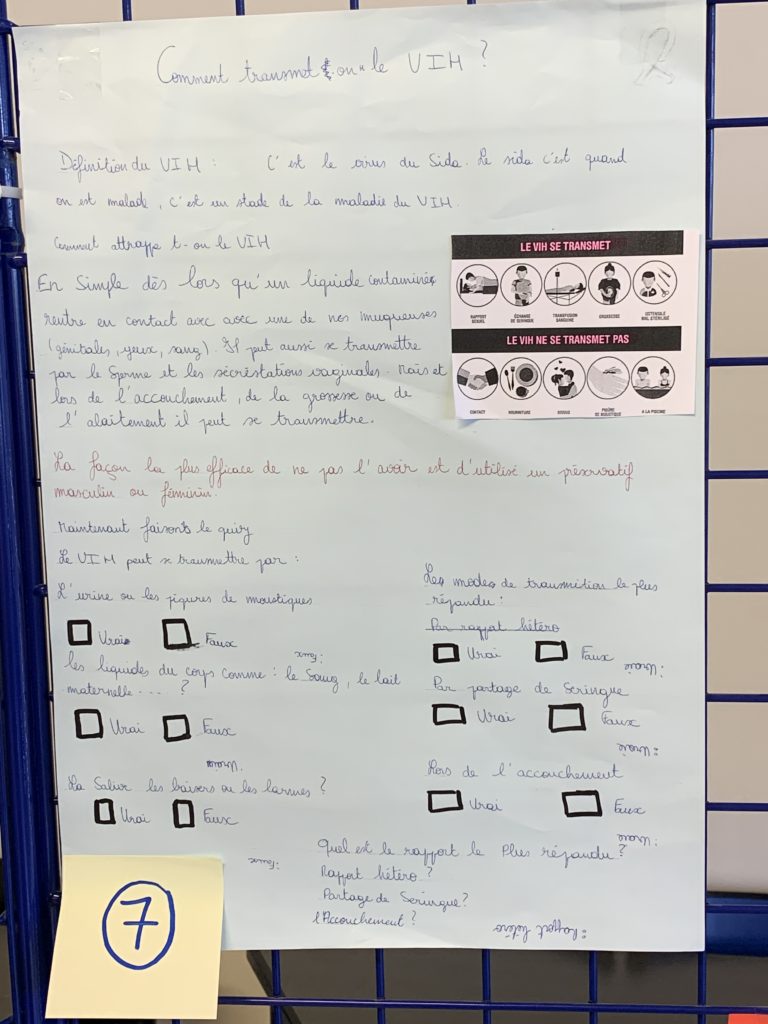 Comment transmet-on le VIH ?
Définition du VIH : C'est le virus du Sida. Le sida c'est quand
on est malade, c'est un stade de la maladie du VIH.
Comment attrappe t-on le VIH
En Simple dès lors qu'un liquide contaminé
rentre en contact avec avec une de nos muqueuses
(génitales, yeux, sang). Il peut aussi se transmettre
par le Sperme et les sécréstations vaginales. Mais et
lors de l'accouchement, de la grossesse ou de
l'alaitement il peut se transmettre.
LE VIH SE TRANSMET
RAPPORT SEXUEL
ÉCHANGE DE SERINGUE
TRANSFUSION SANGUINE
GROSSESSE
USTENSILE MAL STÉRILISÉ
LE VIH NE SE TRANSMET PAS
CONTACT
NOURRITURE
BISOUS
PIQÛRE DE MOUSTIQUE
A LA PISCINE
La façon la plus efficace de ne pas l'avoir est d'utilisé un préservatif
masculin ou féminin.
Maintenant faisons le quizz
Le VIH peut se transmettre par :
L'urine ou les piqures de moustiques
Vrai Faux
: Faux
les liquides du corps comme : le Sang, le lait
maternelle .... ?
Vrai Faux
: Vraie
La Salive les baisers ou les larmes ?
Vrai Faux
: Faux
Les modes de transmition le plus
répandu :
Par rapport hétéro
Vrai Faux
: Vraie
Par partage de Seringue
Vrai Faux
: Vraie
Lors de l'accouchement
Vrai Faux
: Vraie
Quel est le rapport le Plus répandu ?
Rapport hétéro ?
Partage de Seringue ?
l'Accouchement ?
: Rapport hétéro
7